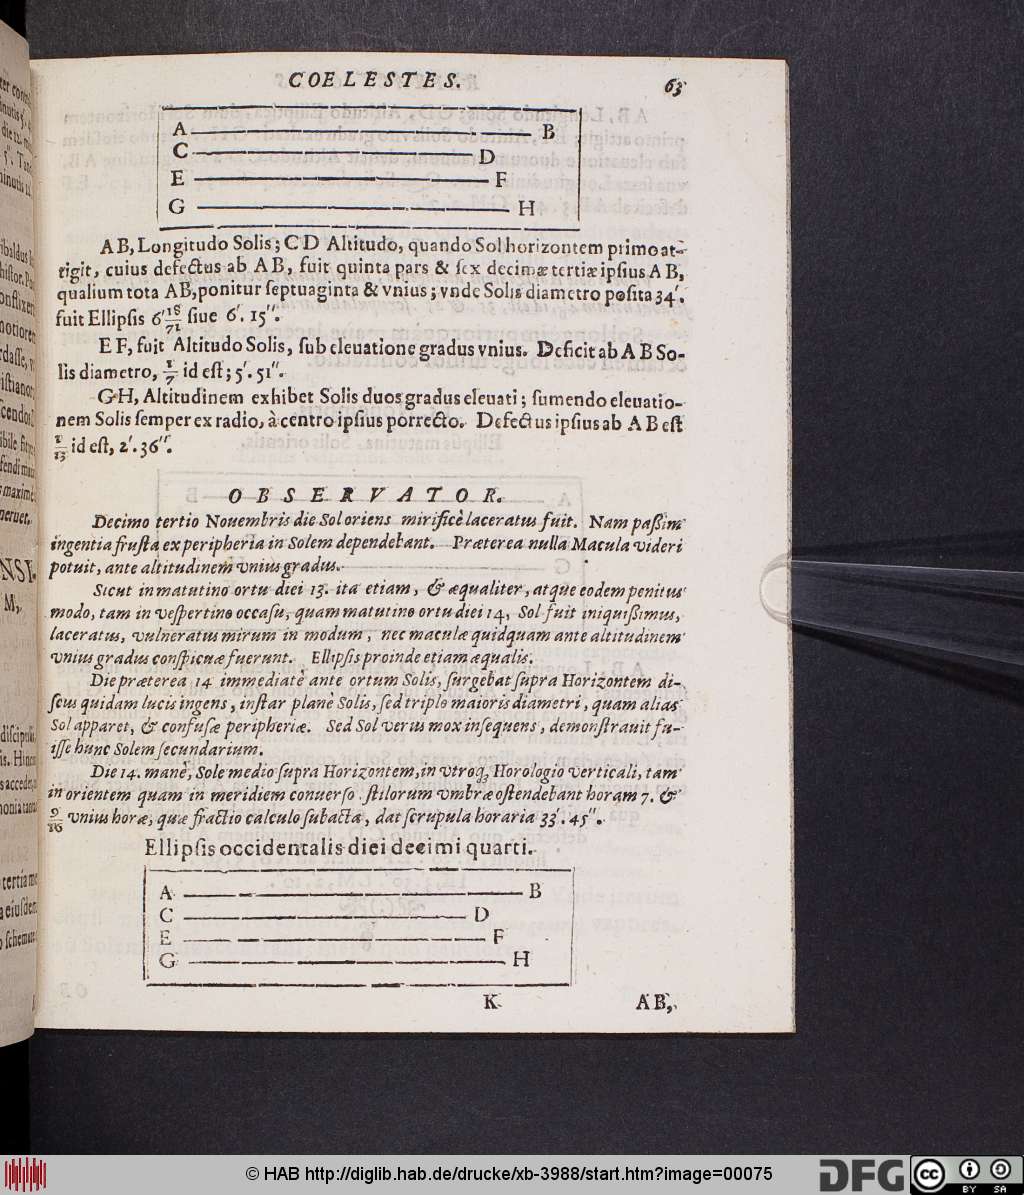 COELESTES. 63
A B
C D
E F
G H
AB, Longitudo Solis; CD Altitudo, quando Sol horizontem primo at-
tigit, cuius defectus ab AB, fuit quinta pars & sex decimæ tertiæ ipsius AB,
qualium tota AB, ponitur septuaginta & vnius; vnde Solis diametro posita 34'.
fuit Ellipsis 6' 18/71 siue 6'. 15''.
EF, fuit Altitudo Solis, sub eleuatione gradus vnius. Deficit ab AB So-
lis diametro, 1/7 id est; 5'. 51''.
GH, Altitudinem exhibet Solis duos gradus eleuati; sumendo eleuatio-
nem Solis semper ex radio, à centro ipsius porrecto. Defectus ipsius ab AB est
1/13 id est, 2'. 36''.
OBSERVATOR.
Decimo tertio Nouembris die Sol oriens mirificè laceratus fuit. Nam paßim
ingentia frusta ex peripheria in Solem dependebant. Præterea nulla Macula videri
potuit, ante altitudinem vnius gradus.
Sicut in matutino ortu diei 13. ita etiam, & æqualiter, atque eodem penitus
modo, tam in vespertino occasu, quam matutino ortu diei 14, Sol fuit iniquißimus,
laceratus, vulneratus mirum in modum, nec maculæ quidquam ante altitudinem
vnius gradus conspicuæ fuerunt. Ellipsis proinde etiam æqualis.
Die præterea 14 immediatè ante ortum Solis, surgebat supra Horizontem di-
scus quidam lucis ingens, instar planè Solis, sed triplo maioris diametri, quam alias
Sol apparet, & confusæ peripheriæ. Sed Sol verius mox insequens, demonstrauit fu-
isse hunc Solem secundarium.
Die 14. manè, Sole medio supra Horizontem, in vtroq; Horologio verticali, tam
in orientem quam in meridiem conuerso stilorum vmbræ ostendebant horam 7. &
9/16 vnius horæ, quæ fractio calculo subacta, dat scrupula horaria 33'. 45''.
Ellipsis occidentalis diei decimi quarti.
A B
C D
E F
G H
K AB,
© HAB http://diglib.hab.de/drucke/xb-3988/start.htm?image=00075
DFG cc BY SA